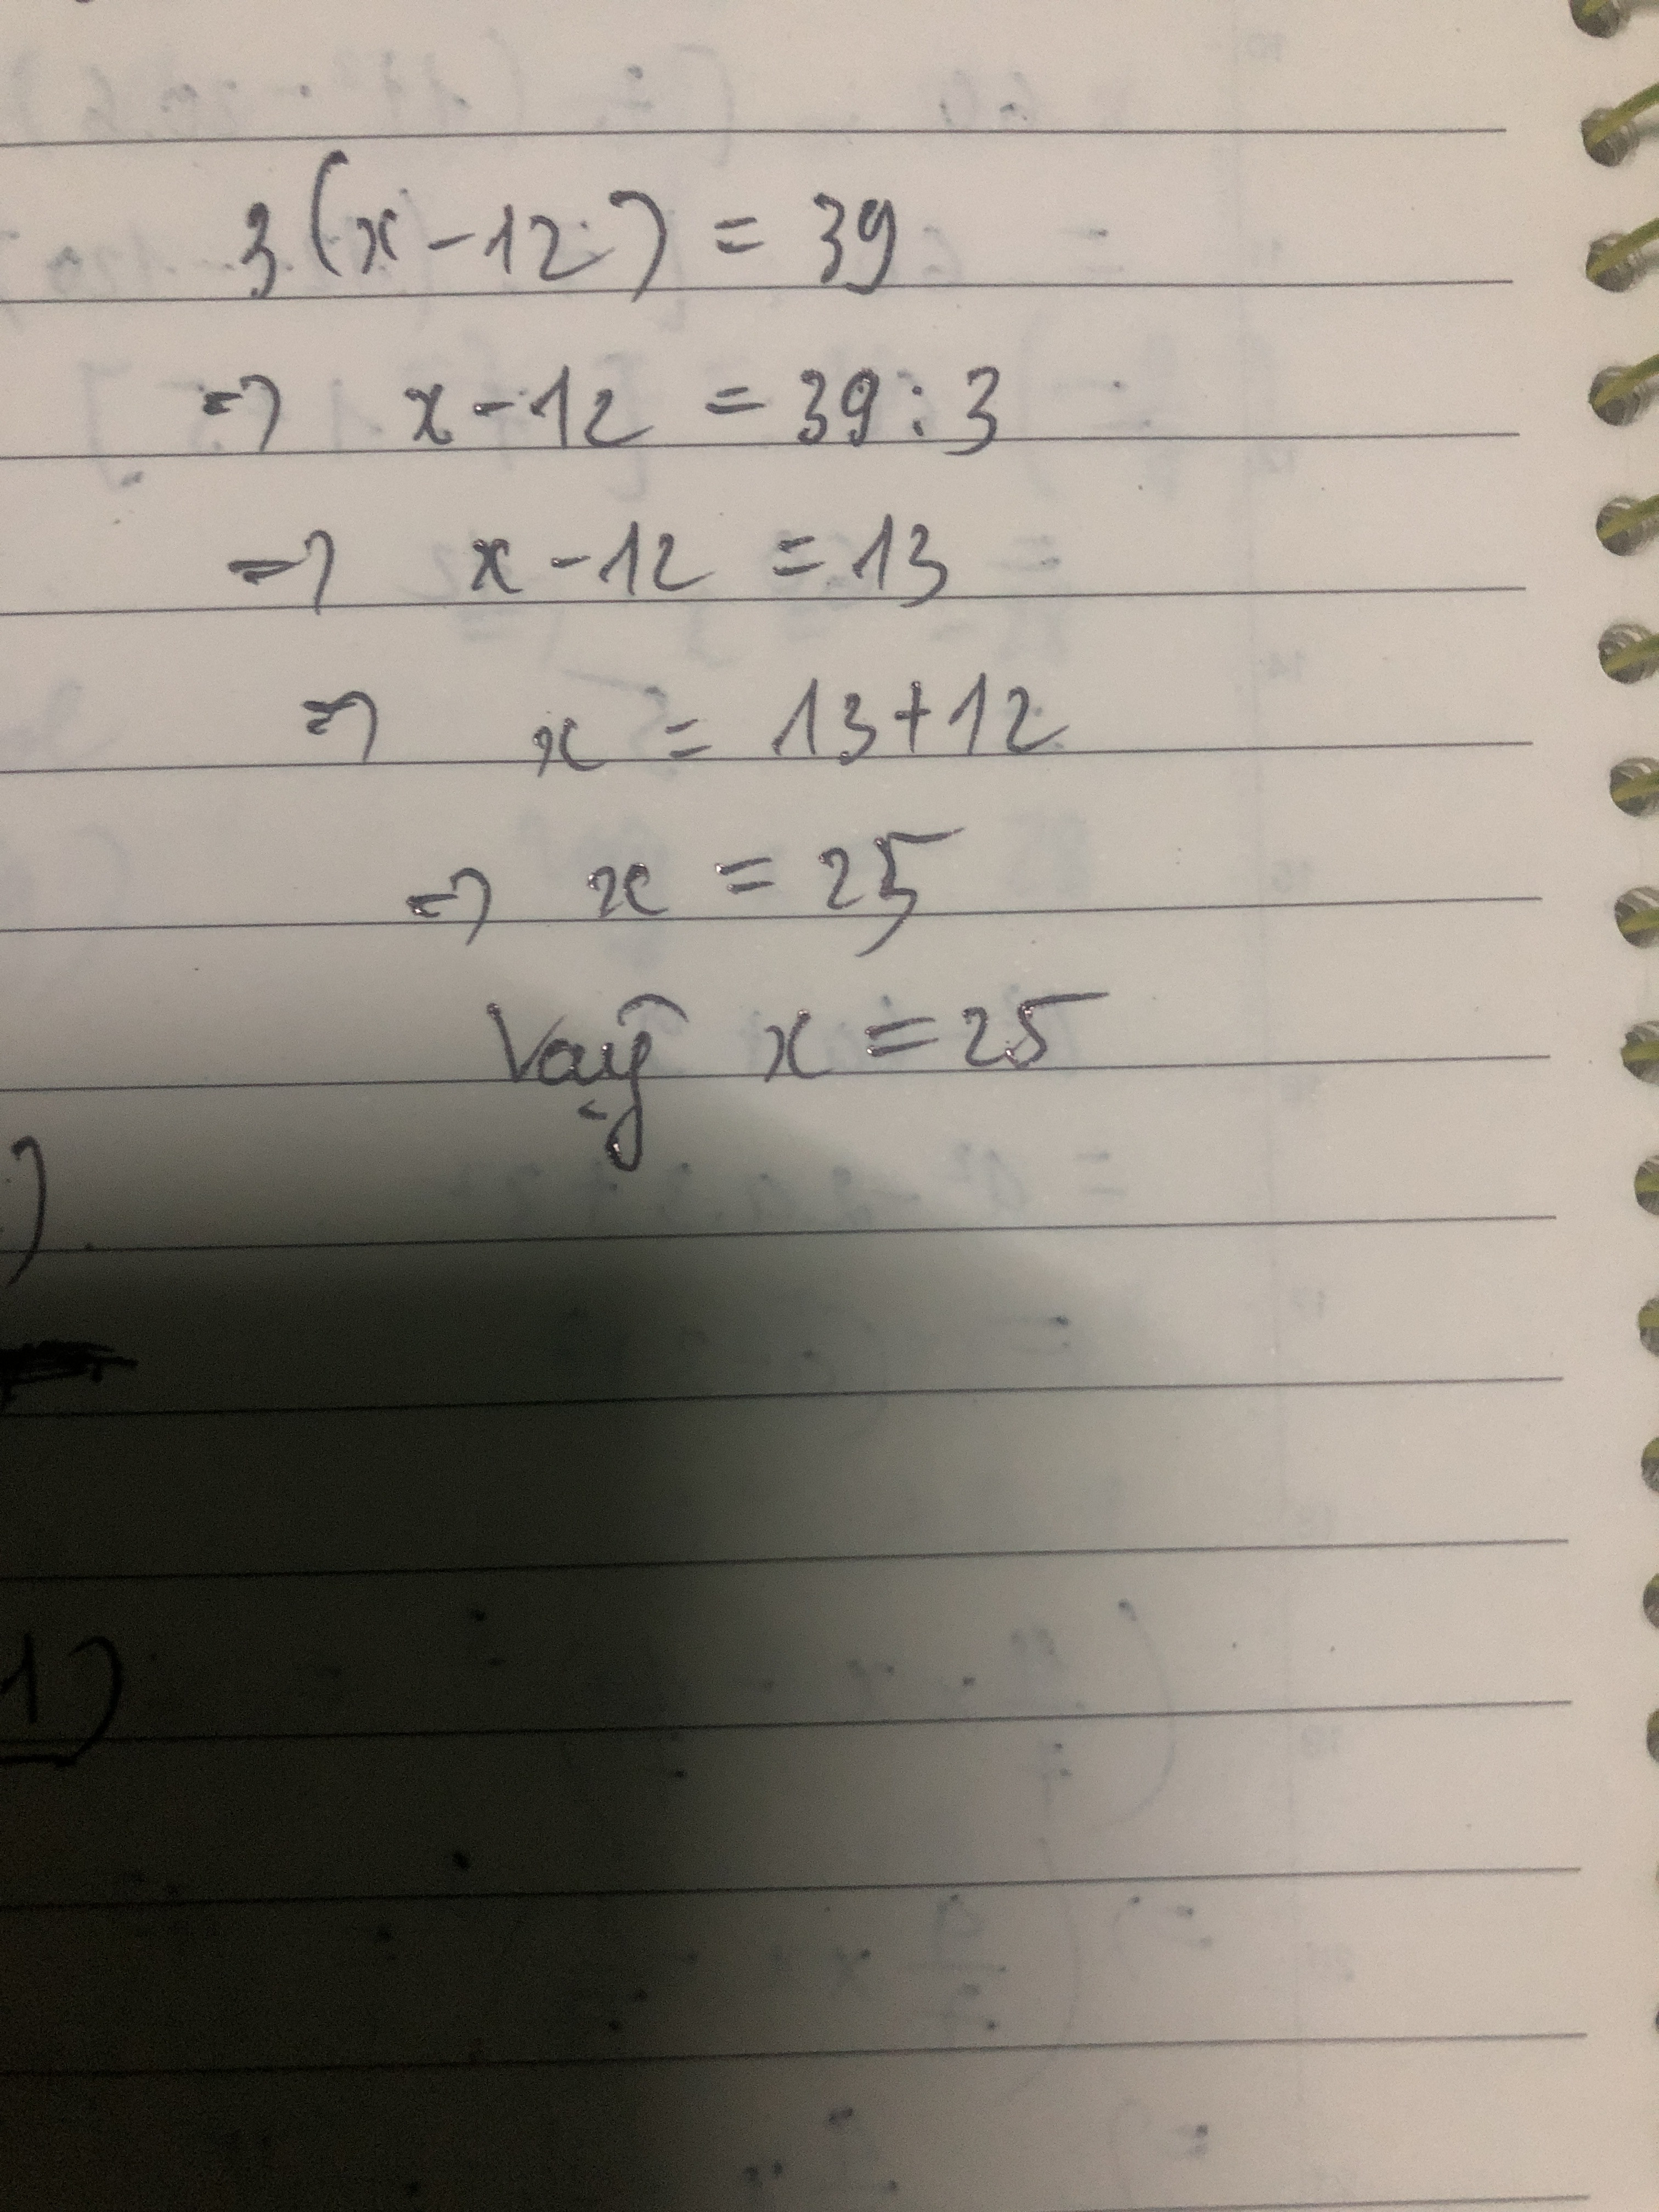 3(x-12) = 39
=> x-12 = 39:3
=> x-12 = 13
=> x = 13+12
=> x = 25
Vậy x = 25
)
1)